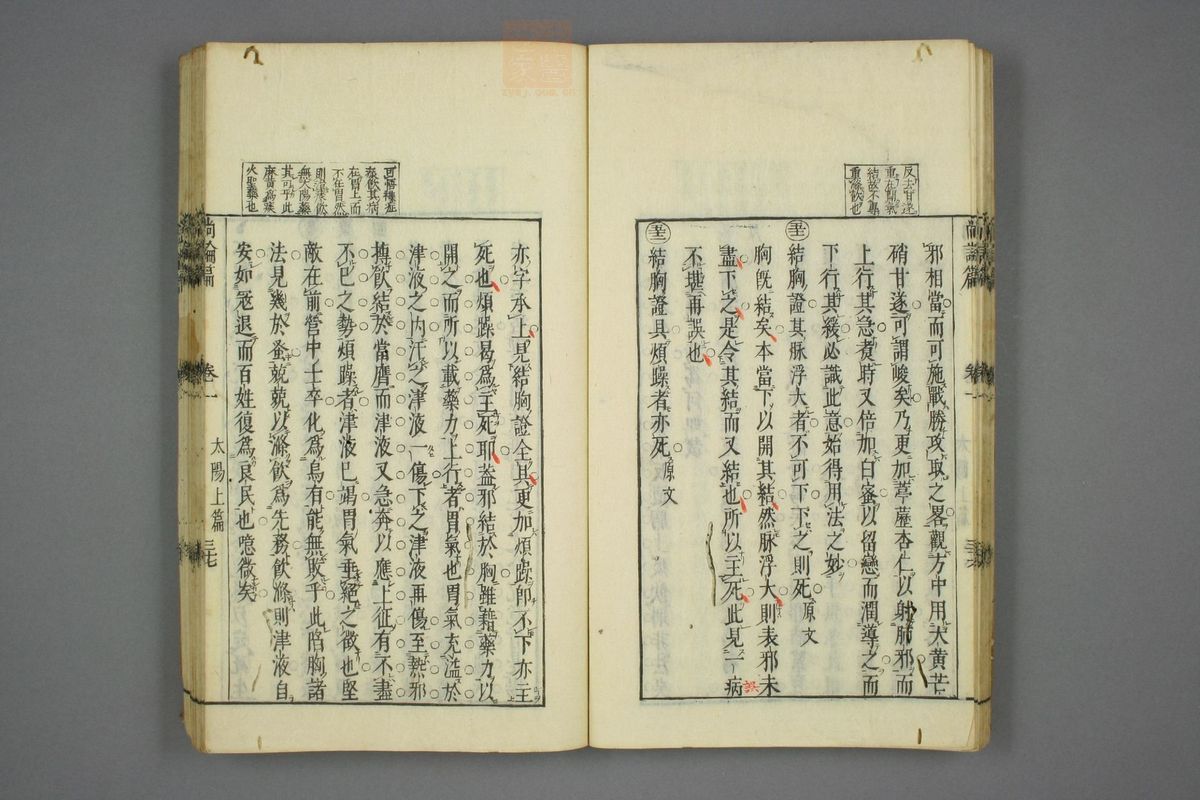 尚論篇
卷一
反去甘遂
重在胸氣
結故不專
重滌飲也
邪相當而可施戰勝攻取之畧觀方中用大黃芒
硝甘遂可謂峻矣乃更加葶藶杏仁以射肺邪而
上行其急煑時又倍加白蜜以留戀而潤導之而
下行其緩必識此意始得用法之妙
結胸證其脉浮大者不可下下之則死原文
胸旣結矣本當下以開其結然脉浮大則表邪未
盡下之是令其結而又結也所以主死此見一病
誤
不堪再誤也
結胸證具煩躁者亦死原文
可悟
痰飲其病
在胃上而
不在胃然
則
無太陽藥
其可乎此
麻黃爲痰
火聖藥也
亦字承上見結胸證全具更加煩躁卽不下亦主
死也煩躁曷爲主死耶葢邪結於胸雖藉藥力以
開之而所以載藥力上行者胃氣也胃氣充溢於
津液之內汗之津液一傷下之津液再傷至熱邪
摶飲結於當膺而津液又急奔以應上征有不盡
不已之勢煩躁者津液已竭胃氣垂絕之徵也堅
敵在前營中士卒化爲烏有能無敗乎此陷胸諸
法見幾於蚤兢兢以滌飲爲先務飲滌則津液自
安如寇退而百姓復爲良民也噫微矣
尚論篇
卷一
太陽上篇
三七